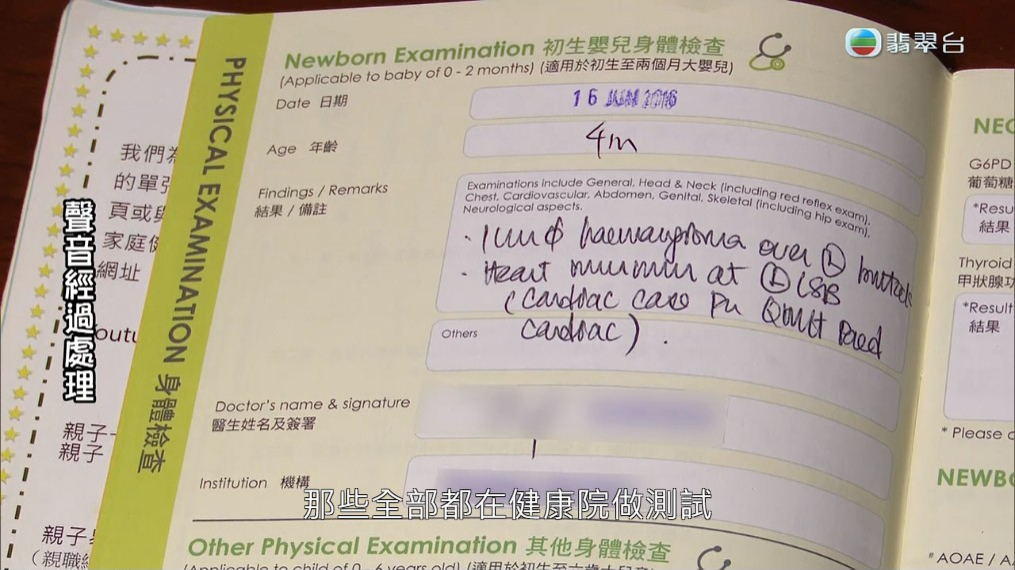 翡翠台
Newborn Examination 初生嬰兒身體檢查
(Applicable to baby of 0 - 2 months) (適用於初生至兩個月大嬰兒)
Date 日期
16
Age 年齡
4m
Findings / Remarks
結果 / 備註
Examinations include General, Head & Neck (including red reflex exam),
Chest, Cardiovascular, Abdomen, Genital, Skeletal (including hip exam),
Neurological aspects.
haemangioma over Ⓛ buttock
· Heart murmur at Ⓛ LSB
(Cardiac case FU QMH Paed
cardiac).
Others
Doctor's name & signature
醫生姓名及簽署
Institution 機構
Other Physical Examination 其他身體檢查
(Applicable to child of 0 - 6 years old) (適用於初生至六歲大兒童)
PHYSICAL EXAMINATION 身體檢查
聲音經過處理
我們為
的單張
頁或
家庭健
網址
親子
親子
(親職
G6PD
葡萄糖
*Resu
結果
Thyroid
甲狀腺功
*Result
結果
* Please
NEWB
# AOAE / A
那些全部都在健康院做測試